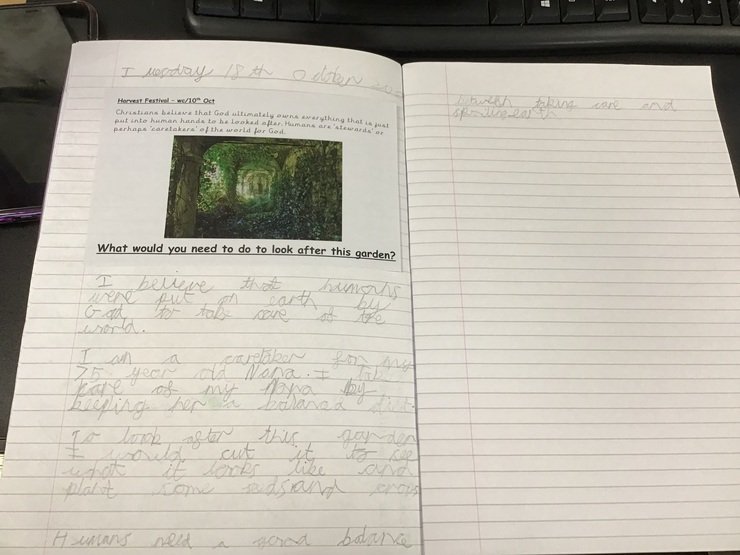 Tuesday 18th October
Harvest Festival - wc/10th Oct
Christians believe that God ultimately owns everything that is just
put into human hands to be looked after. Humans are 'stewards' or
perhaps 'caretakers' of the world for God.
What would you need to do to look after this garden?
I believe that humans
were put on earth by
God to take care of the
world.
I am a caretaker for my
75 year old Nana. I take
care of my Nana by
keeping her a balanced diet.
To look after this garden
I would cut it to see
what it looks like and
plant some seeds and crops
Humans need a good balance
between taking care and